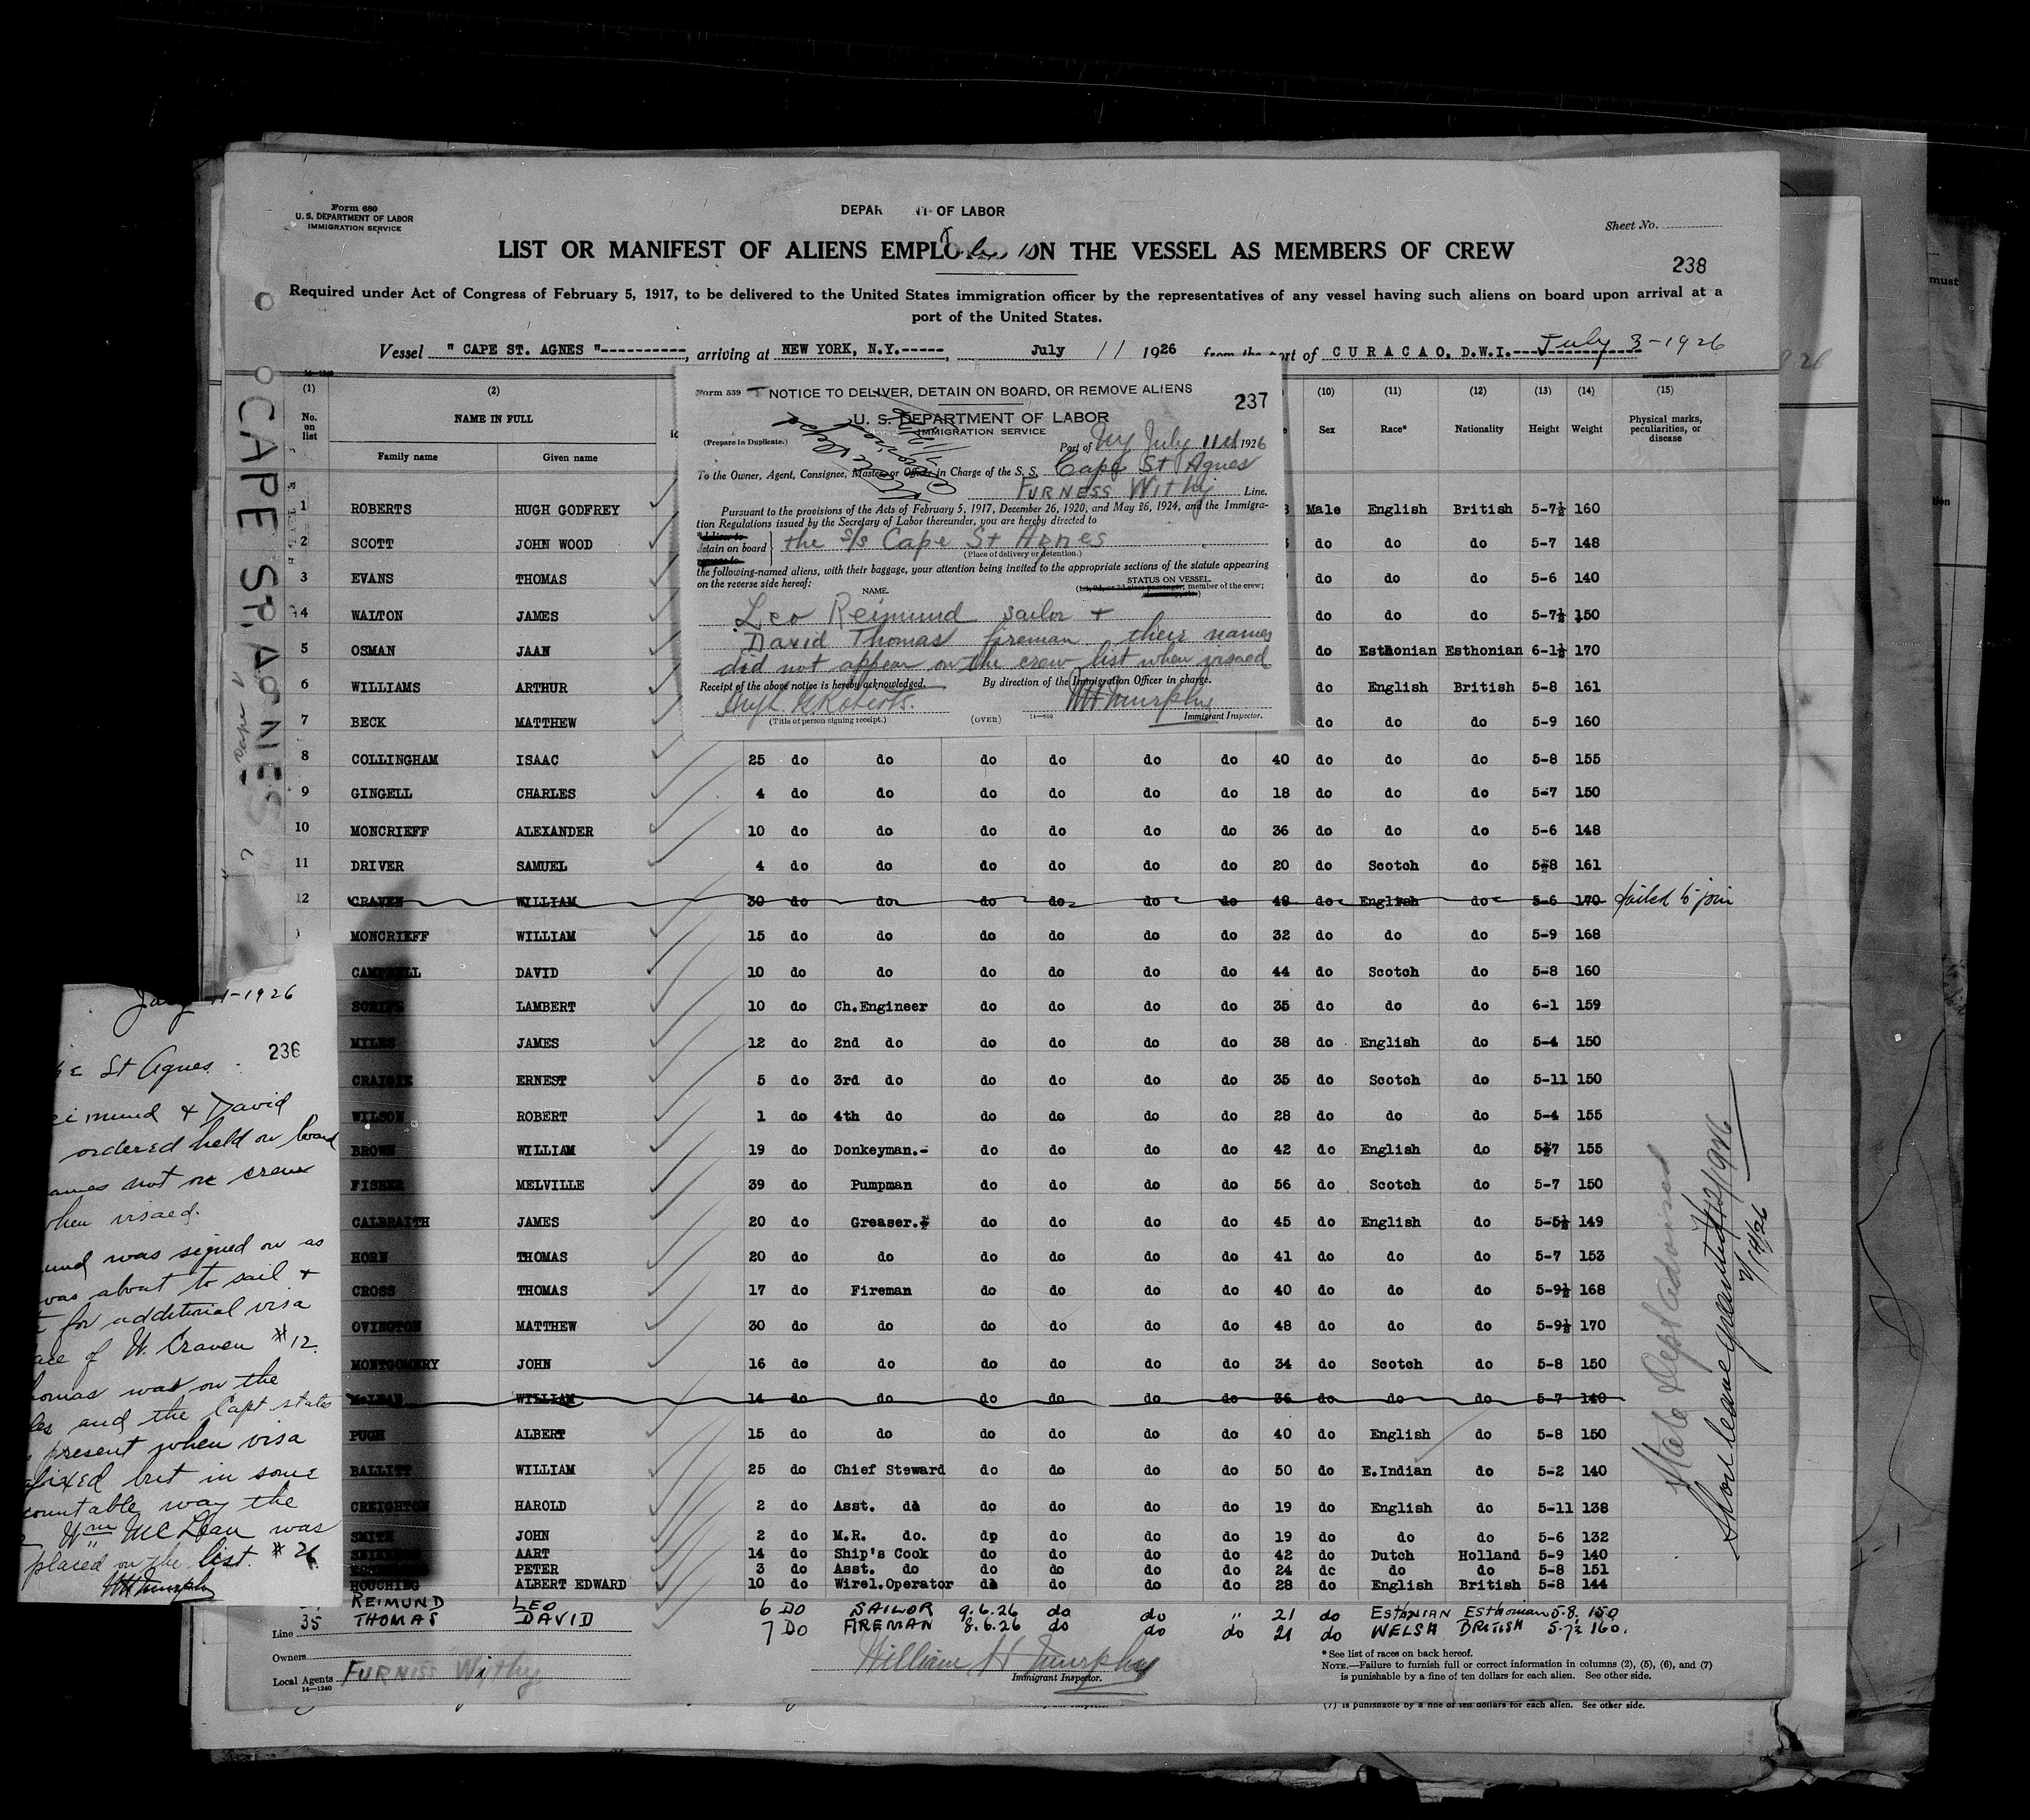 Form 680
U. S. DEPARTMENT OF LABOR
IMMIGRATION SERVICE
DEPAR OF LABOR
Sheet No.
LIST OR MANIFEST OF ALIENS EMPLO ON THE VESSEL AS MEMBERS OF CREW
238
Required under Act of Congress of February 5, 1917, to be delivered to the United States immigration officer by the representatives of any vessel having such aliens on board upon arrival at a
port of the United States.
Vessel " CAPE ST. AGNES "----------, arriving at NEW YORK, N.Y.-----, July 11 1926 from the port of CURACAO, D.W.I.--- July 3-1926
(1) (2) (10) (11) (12) (13) (14) (15)
No. on list NAME IN FULL Sex Race* Nationality Height Weight Physical marks, peculiarities, or disease
Family name Given name
CAPE ST. AGNES
Form 559 NOTICE TO DELIVER, DETAIN ON BOARD, OR REMOVE ALIENS
237
U. S. DEPARTMENT OF LABOR
IMMIGRATION SERVICE
(Prepare in Duplicate.)
Port of NY July 11th 1926
To the Owner, Agent, Consignee, Master or Officer in Charge of the S. S. Cape St Agnes
FURNESS Withy Line.
Pursuant to the provisions of the Acts of February 5, 1917, December 26, 1920, and May 26, 1924, and the Immigra-
tion Regulations issued by the Secretary of Labor thereunder, you are hereby directed to
*deliver to
detain on board the s/s Cape St Agnes
remove to
(Place of delivery or detention.)
the following-named aliens, with their baggage, your attention being invited to the appropriate sections of the statute appearing
on the reverse side hereof:
STATUS ON VESSEL
NAME. (1st, 2d, or 3d class passenger, member of the crew;
Leo Reimund sailor +
David Thomas fireman their names
did not appear on the crew list when visaed
Receipt of the above notice is hereby acknowledged. By direction of the Immigration Officer in charge.
Hugh G. Roberts. WHMurphy
(Title of person signing receipt.) (OVER) 14—689 Immigrant Inspector.
1 ROBERTS HUGH GODFREY Male English British 5-7½ 160
2 SCOTT JOHN WOOD do do do 5-7 148
3 EVANS THOMAS do do do 5-6 140
4 WALTON JAMES do do do 5-7½ 150
5 OSMAN JAAN do Esthonian Esthonian 6-1½ 170
6 WILLIAMS ARTHUR do English British 5-8 161
7 BECK MATTHEW do do do 5-9 160
8 COLLINGHAM ISAAC 25 do do do do do do 40 do do do 5-8 155
9 GINGELL CHARLES 4 do do do do do do 18 do do do 5-7 150
10 MONCRIEFF ALEXANDER 10 do do do do do do 36 do do do 5-6 148
11 DRIVER SAMUEL 4 do do do do do do 20 do Scotch do 5-8 161
12 CRAVEN WILLIAM 30 do do do do do do 48 do English do 5-6 170 failed to join
MONCRIEFF WILLIAM 15 do do do do do do 32 do do do 5-9 168
CAMPBELL DAVID 10 do do do do do do 44 do Scotch do 5-8 160
SCRIFE LAMBERT 10 do Ch.Engineer do do do do 35 do do do 6-1 159
MILES JAMES 12 do 2nd do do do do do 38 do English do 5-4 150
CRAIGIE ERNEST 5 do 3rd do do do do do 35 do Scotch do 5-11 150
WILSON ROBERT 1 do 4th do do do do do 28 do do do 5-4 155
BROWN WILLIAM 19 do Donkeyman.- do do do do 42 do English do 5-7 155
FISHER MELVILLE 39 do Pumpman do do do do 56 do Scotch do 5-7 150
CALBRAITH JAMES 20 do Greaser. do do do do 45 do English do 5-5½ 149
HORN THOMAS 20 do do do do do do 41 do do do 5-7 153
CROSS THOMAS 17 do Fireman do do do do 40 do do do 5-9½ 168
OVINGTON MATTHEW 30 do do do do do do 48 do do do 5-9½ 170
MONTGOMERY JOHN 16 do do do do do do 34 do Scotch do 5-8 150
McLEAN WILLIAM 14 do do do do do do 36 do do do 5-7 140
PUGH ALBERT 15 do do do do do do 40 do English do 5-8 150
BALLITT WILLIAM 25 do Chief Steward do do do do 50 do E.Indian do 5-2 140
CREIGHTON HAROLD 2 do Asst. do do do do do 19 do English do 5-11 138
SMITH JOHN 2 do M.R. do. do do do do 19 do do do 5-6 132
AART 14 do Ship's Cook do do do do 42 do Dutch Holland 5-9 140
PETER 3 do Asst. do do do do do 24 do do do 5-8 151
HOUCHING ALBERT EDWARD 10 do Wirel.Operator do do do do 28 do English British 5-8 144
REIMUND LEO 6 DO SAILOR 9.6.26 do do " 21 do ESTHNIAN ESThonian 5.8. 150
35 THOMAS DAVID 7 DO FIREMAN 8.6.26 do do do 21 do WELSH BRITISH 5.7½ 160.
Line
Owners
Local Agents FURNISS Withy
14—1240
William H Murphy
Immigrant Inspector.
*See list of races on back hereof.
NOTE.—Failure to furnish full or correct information in columns (2), (5), (6), and (7)
is punishable by a fine of ten dollars for each alien. See other side.
(7) is punishable by a fine of ten dollars for each alien. See other side.
State Dept advised
Shore leave granted 7/12/1926
7/14/26
July 11-1926
236
St Agnes.
eimund & David
ordered held on board
ames not on crew
when visaed.
und was signed on as
was about to sail +
for additional visa
ace of W. Craven #12.
homas was on the
les and the Capt states
present when visa
afixed but in some
countable way the
Wm McLean was
placed on the list. #26
WHMurphy
must